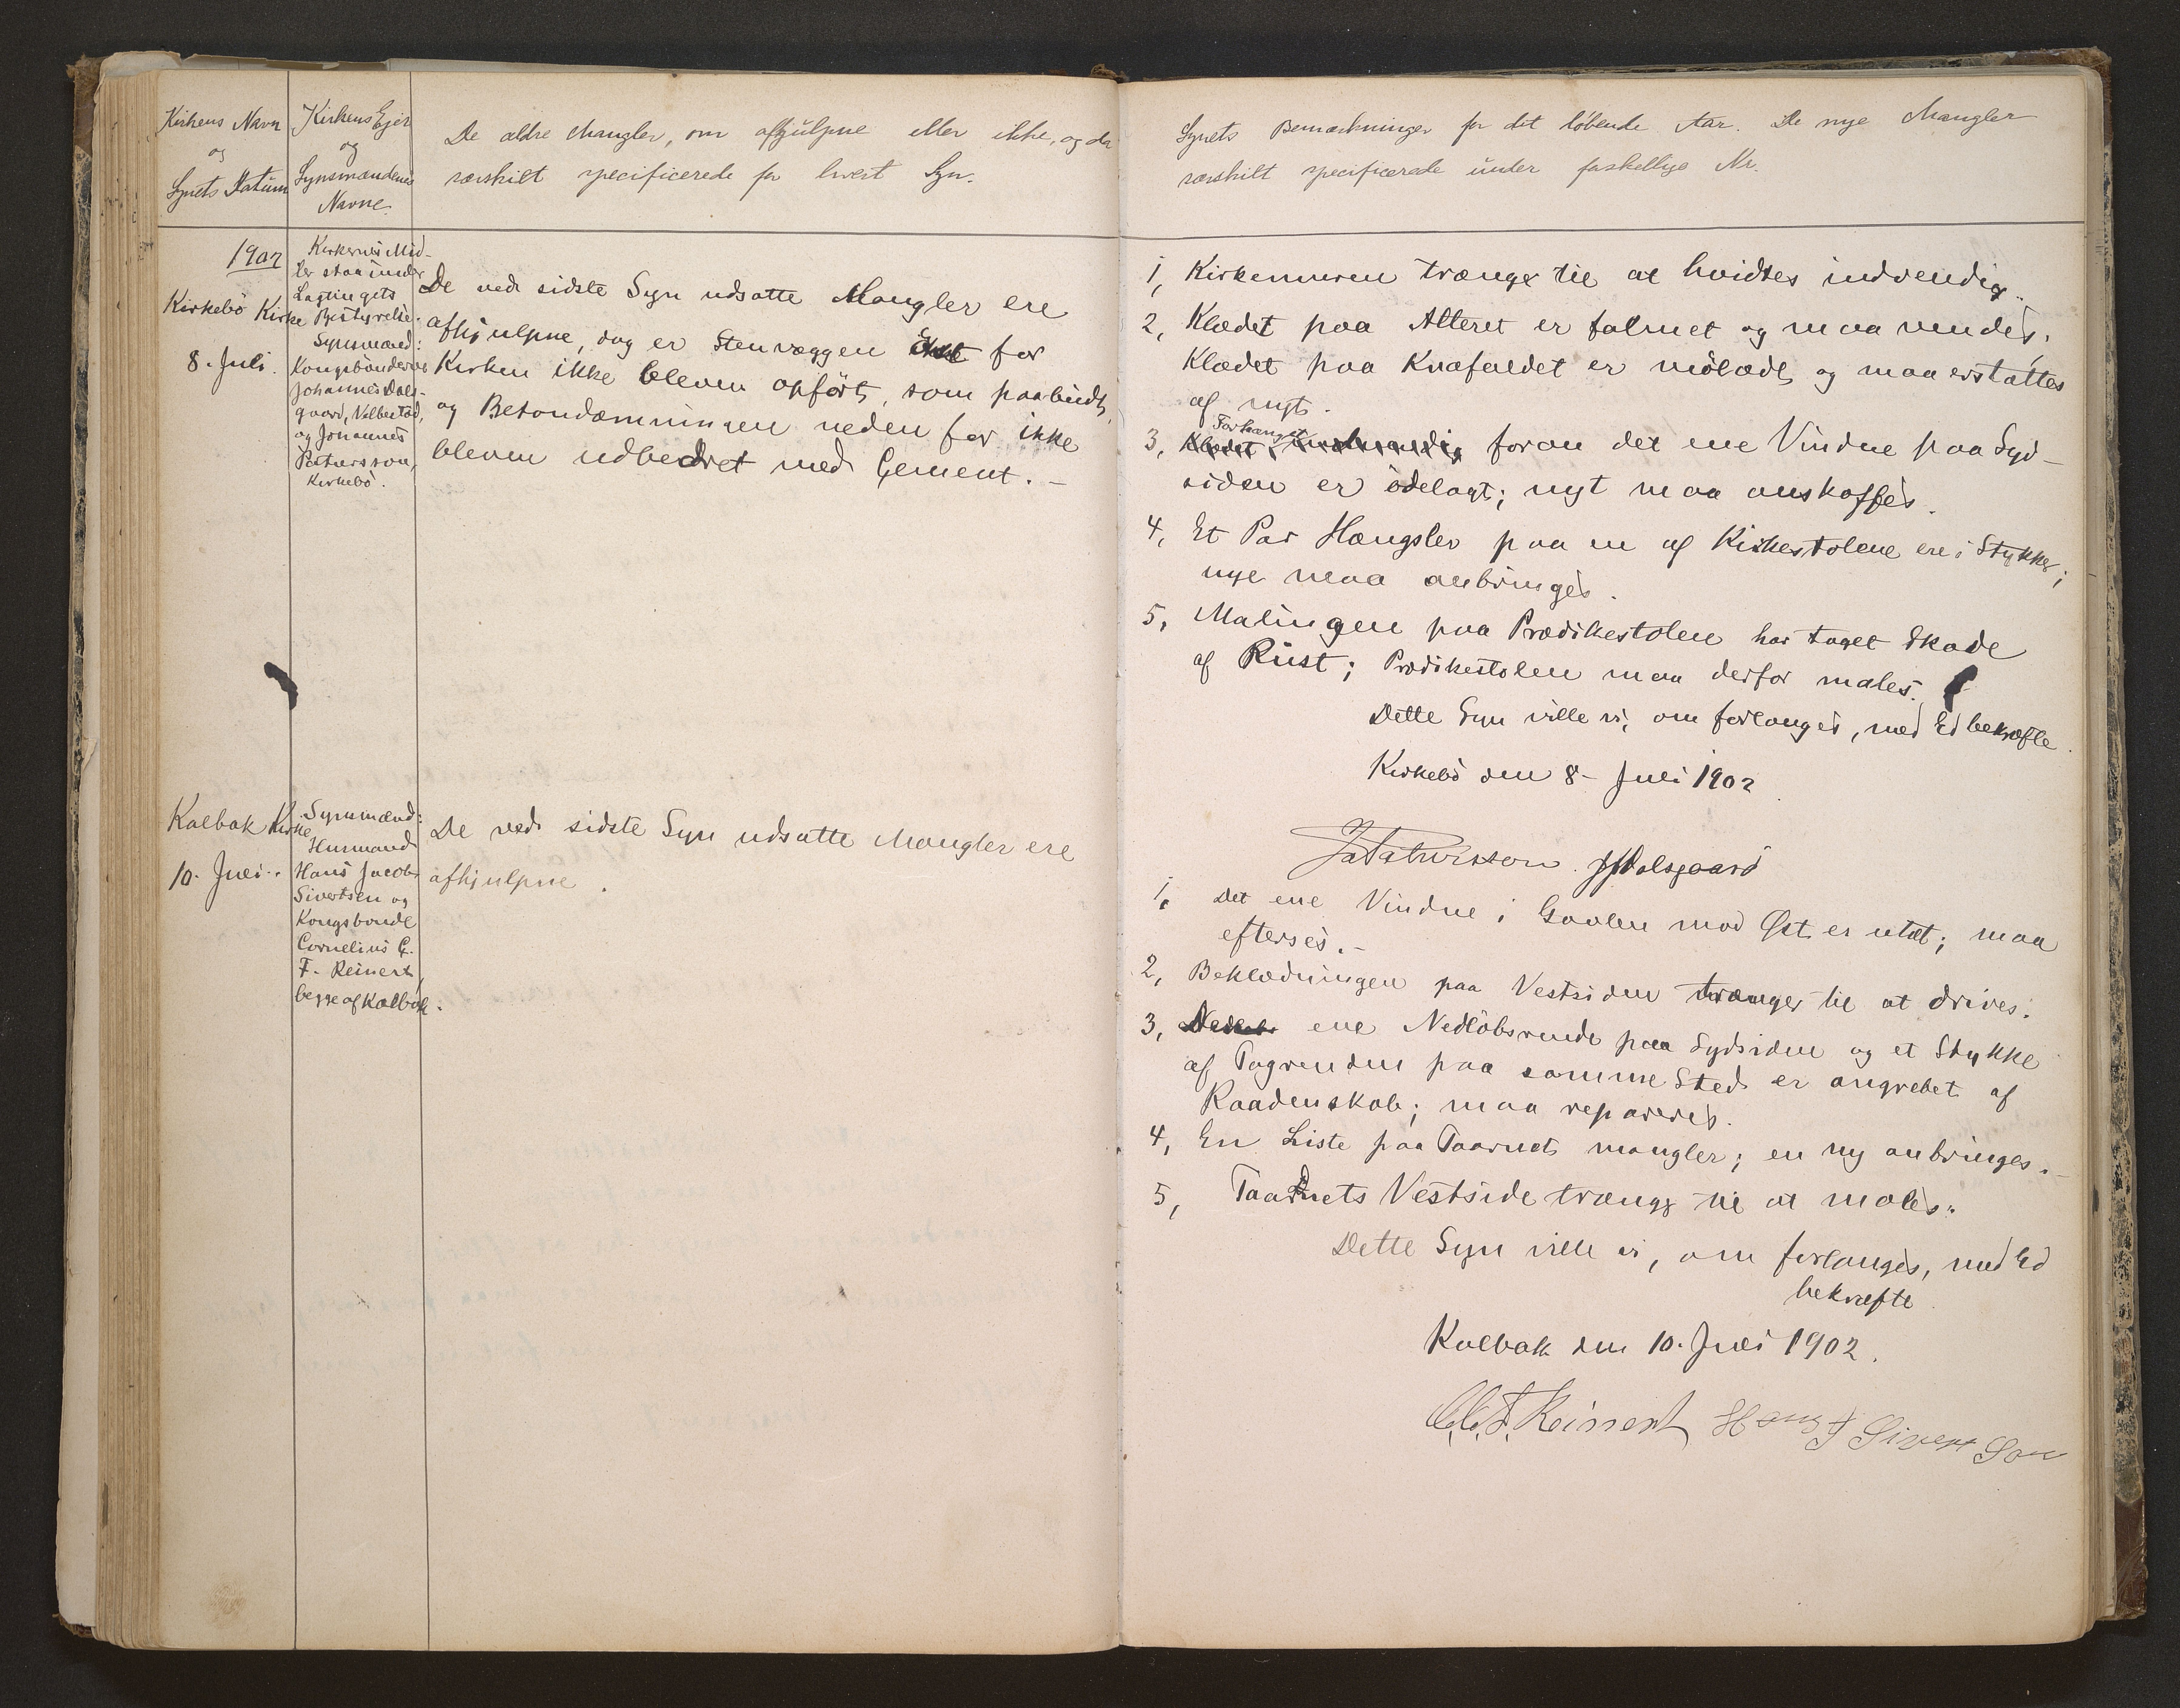 Kirkens Navn
og
Synets Datum
Kirkens Ejer
og
Synsmændenes
Navne.
De ældre Mangler, om afhjulpne eller ikke, og da
særskilt specificerede for hvert Syn.
1902
Kirkebö Kirke
8. Juli.
Kirkernes Mid-
ler staa under
Lagtingets
Bestyrelse.
Synsmænd:
Kongsbönderne
Johannes Dals-
gaard, Velbestad,
og Johannes
Patursson,
Kirkebö.
De ved sidste Syn udsatte Mangler ere
afhjulpne, dog er Stenvæggen for
Kirken ikke bleven opfört, som paabudt,
og Betondæmningen neden for ikke
bleven udbedret med Cement. -
Kalbak Kirke
10. Juli.
Synsmænd:
Husmand
Hans Jacob
Sivertsen og
Kongsbonde
Cornelius C.
F. Reinert,
begge af Kalbak.
De ved sidste Syn udsatte Mangler ere
afhjulpne.
Synets Bemærkninger for det löbende Aar. De nye Mangler
særskilt specificerede under forskellige Nr.
1, Kirkemuren trænger til at hvidtes indvendig.
2, Klædet paa Alteret er falmet og maa vendes.
Klædet paa Knæfaldet er mölædt, og maa erstattes
af nyt.
Forhænget
3, Klædet indvendig foran det ene Vindue paa Syd-
siden er ödelagt; nyt maa anskaffes.
4, Et Par Hængsler paa en af Kirkestolene ere i Stykker;
nye maa anbringes.
5, Malingen paa Prædikestolen har taget Skade
af Rust; Prædikestolen maa derfor males.
Dette Syn ville vi, om forlanges, med Ed bekræfte.
Kirkebö den 8- Juli 1902.
JaPatursson. JJDalsgaard
1, Det ene Vindue i Gavlen mod Øst er utæt; maa
efterses. -
2, Beklædningen paa Vestsiden trænger til at drives.
3, ene Nedlöbsrende paa Sydsiden og et Stykke
af Tagrenden paa samme Sted er angrebet af
Raadenskab; maa repareres.
4, En Liste paa Taarnet mangler; en ny anbringes. -
5, Taarnets Vestside trænger til at males.
Dette Syn ville vi, om forlanges, med Ed
bekræfte.
Kalbak den 10. Juli 1902.
C.C.F. Reinert Hans J Sivert Son